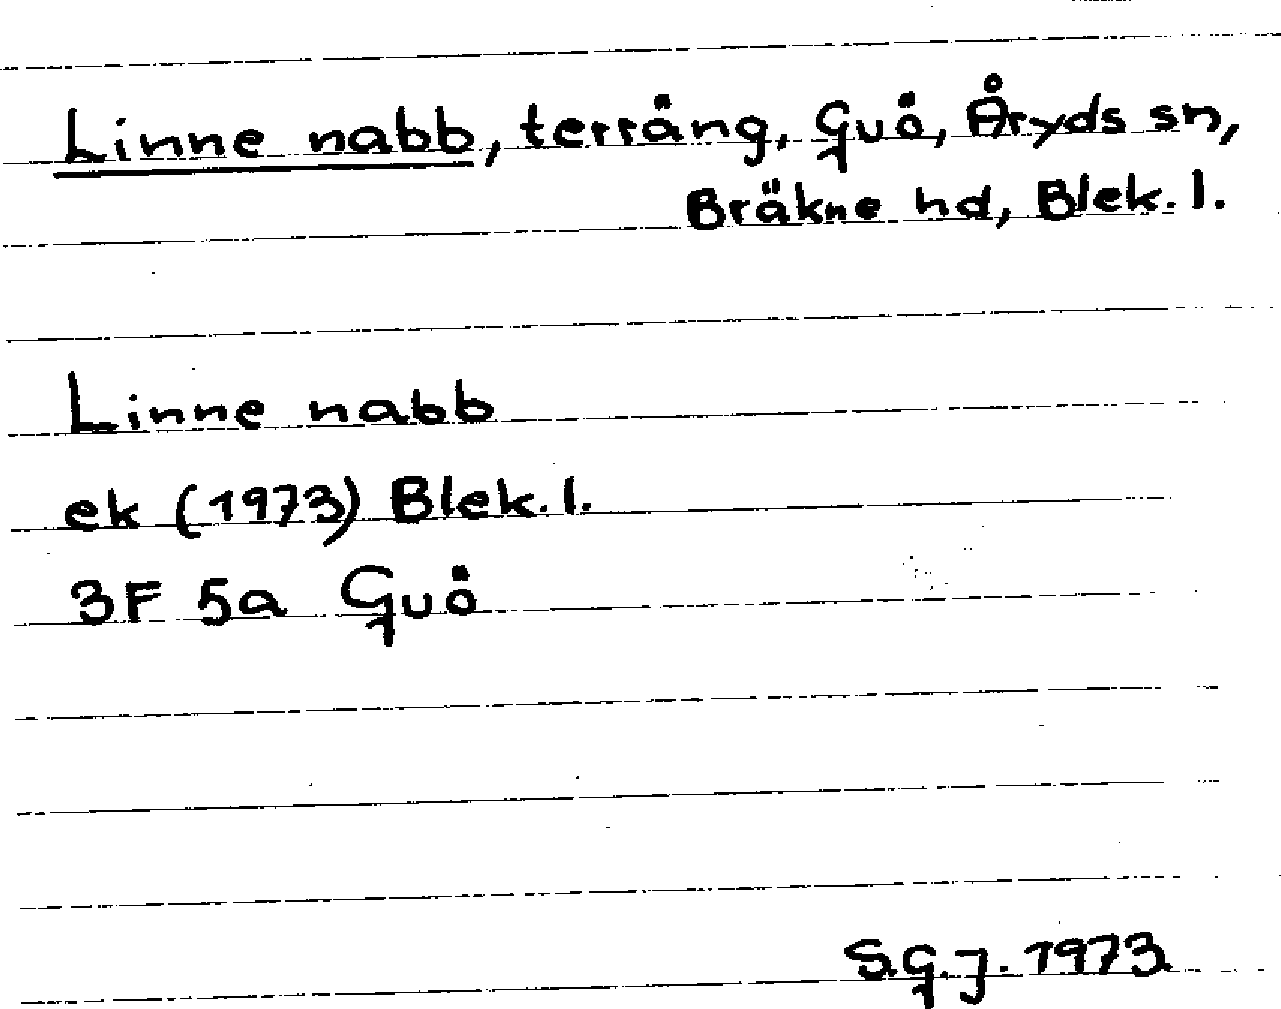 Linne nabb, terräng, Guö, Åryds sn,
Bräkne hd, Blek. l.
Linne nabb
ek (1973) Blek. l.
3F 5a Guö
S.G.J. 1973